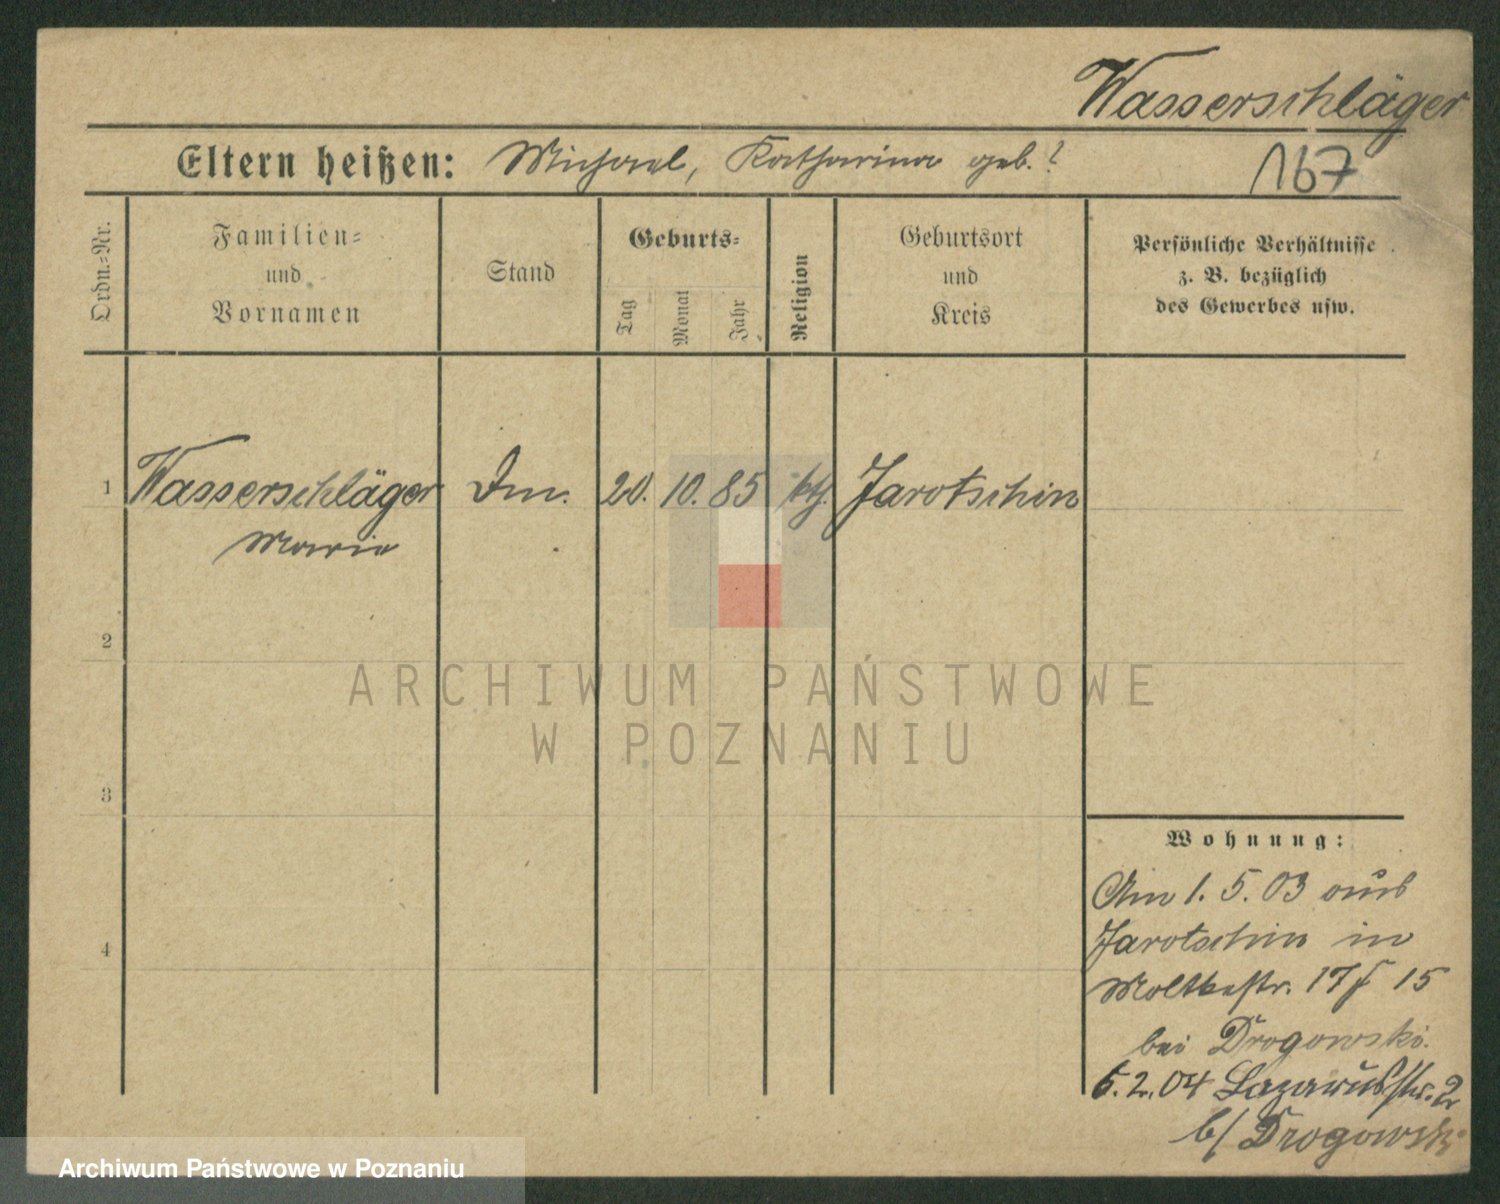 Wasserschläger
Eltern heißen: Michael, Katharina geb. ?
167
Ordn.-Nr.
Familien-
und
Vornamen
Stand
Geburts-
Tag
Monat
Jahr
Religion
Geburtsort
und
Kreis
Persönliche Verhältnisse
z. B. bezüglich
des Gewerbes usw.
1 Wasserschläger 20. 10. 85 kth. Jarotschin
Marie
2
3
4
ARCHIWUM PAŃSTWOWE
W POZNANIU
Wohnung:
Am 1. 5. 03 aus
Jarotschin in
Moltkestr. 15
bei Drogowski.
6. 2. 04 Lazarusstr. 2
b/ Drogowski
Archiwum Państwowe w Poznaniu